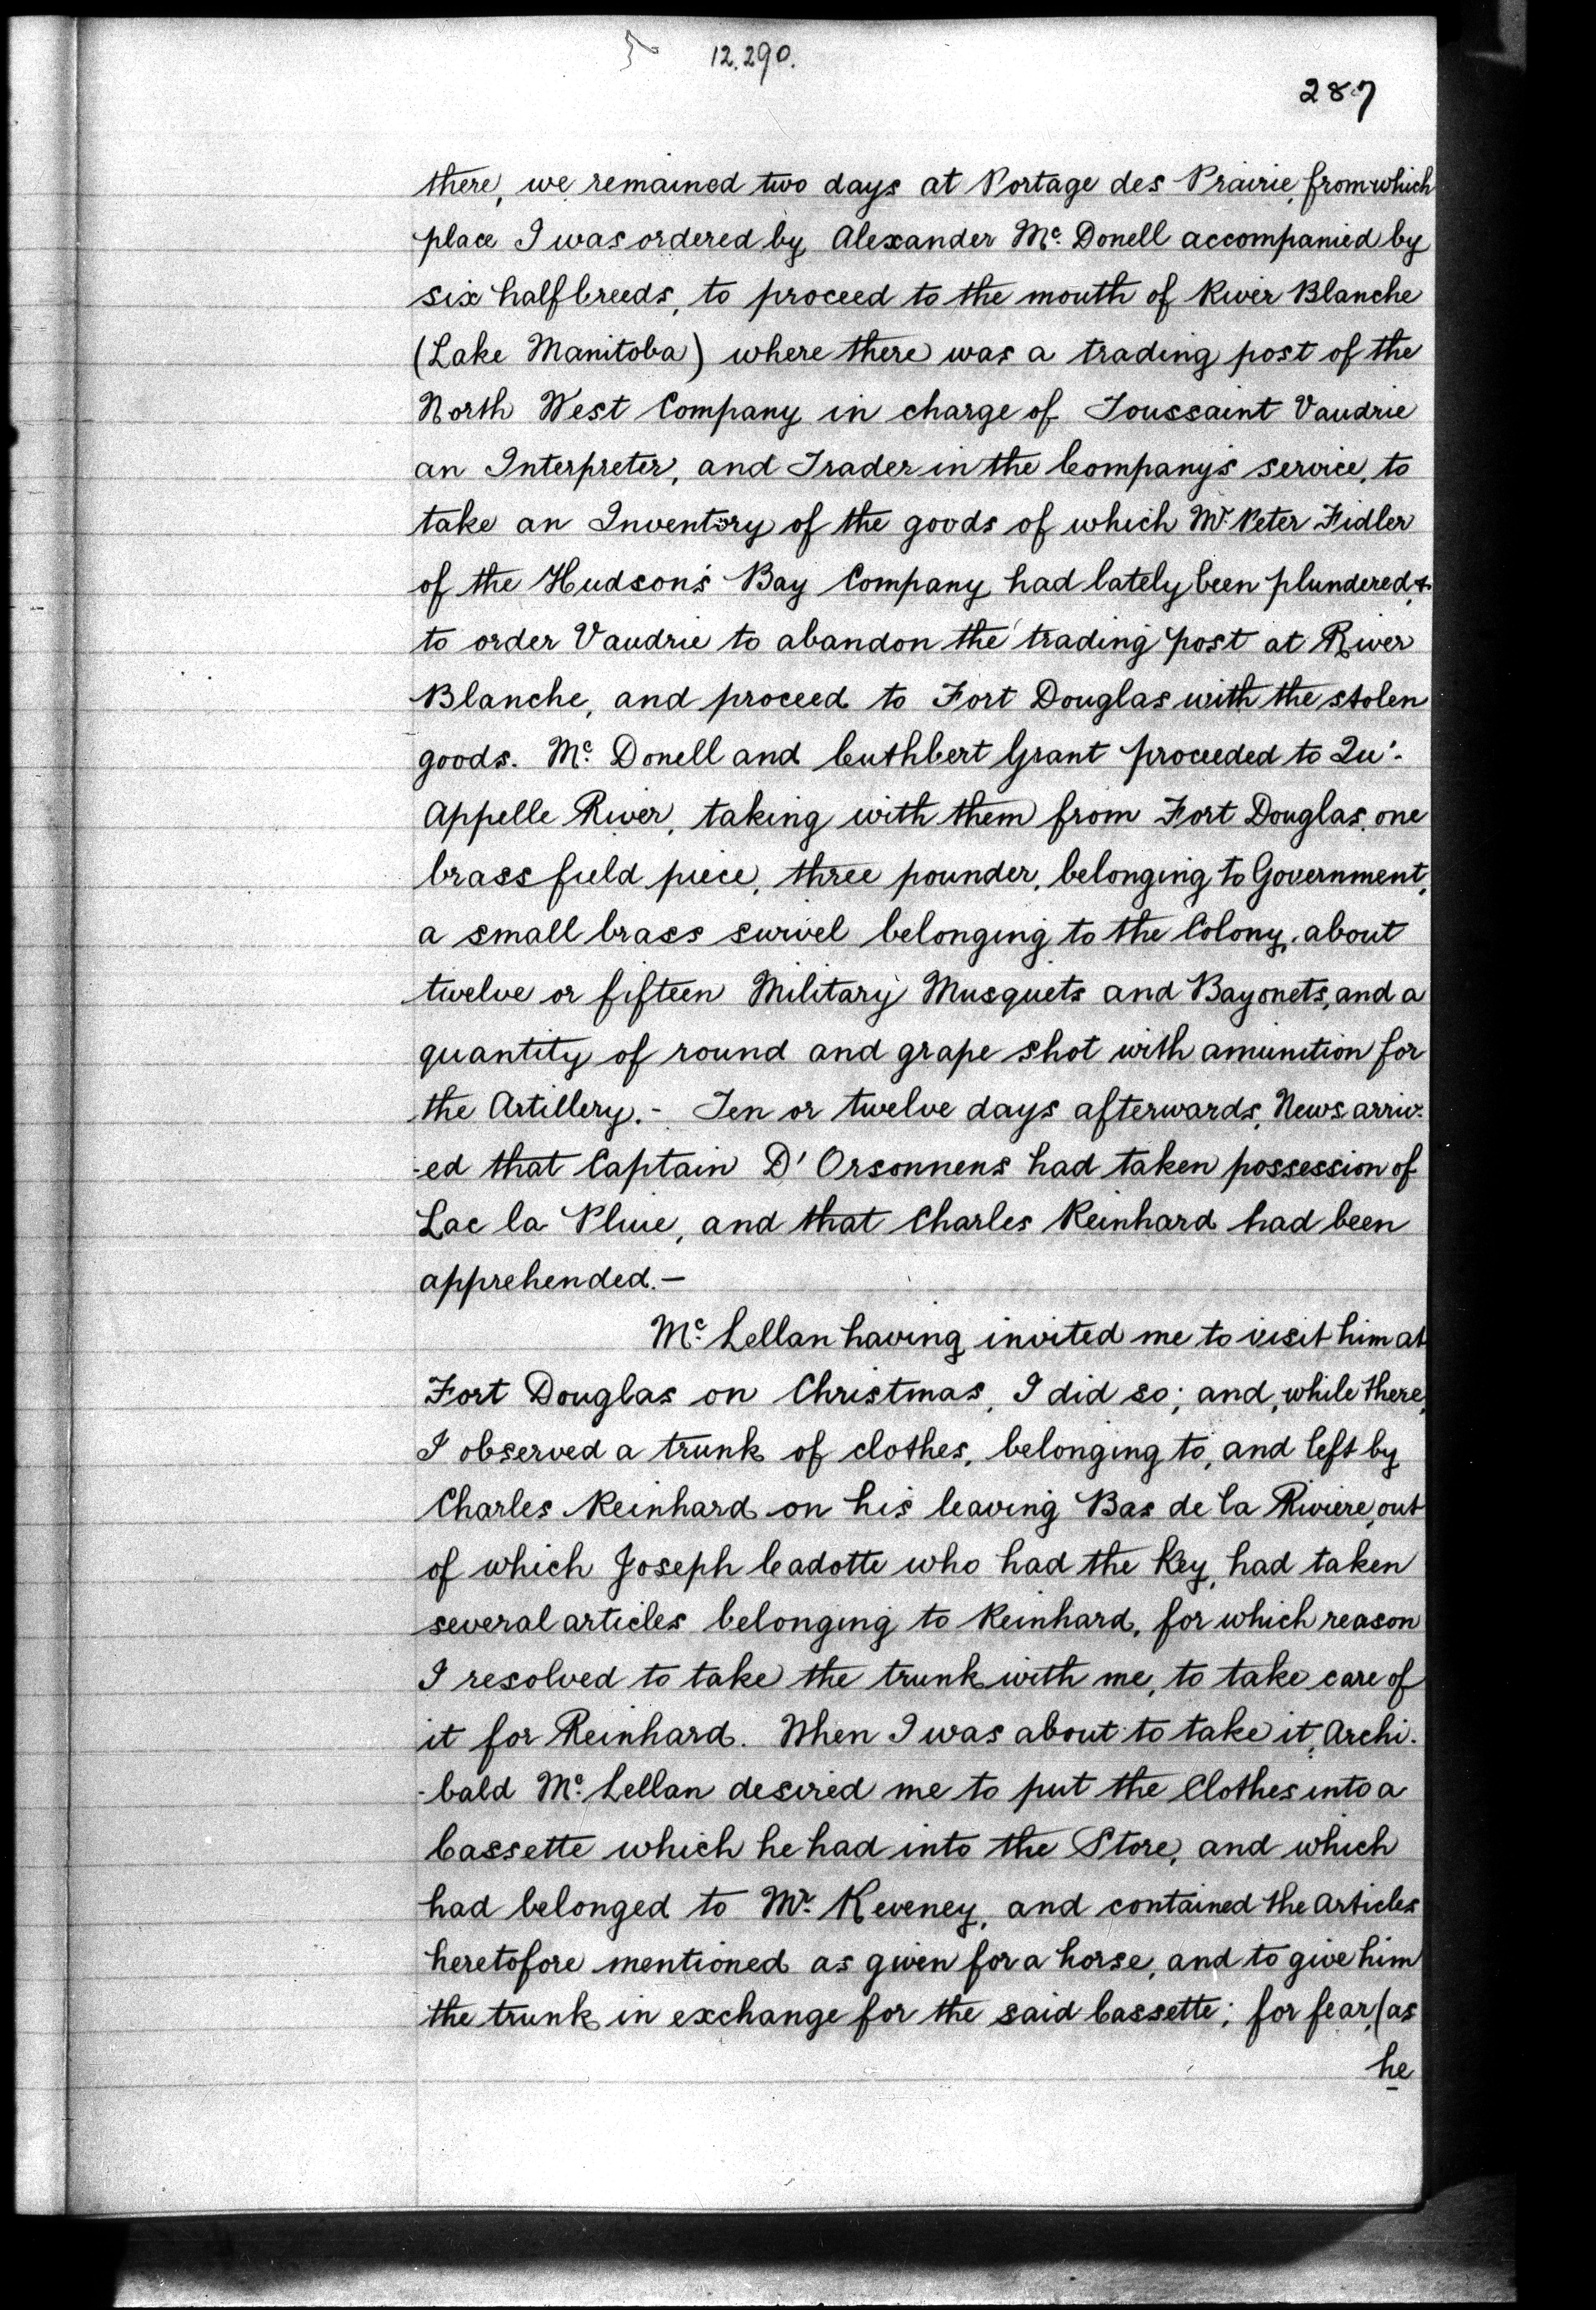 12.290.
287
there, we remained two days at Portage des Prairie, from which
place I was ordered by Alexander Mc. Donell accompanied by
six halfbreeds, to proceed to the mouth of River Blanche
(Lake Manitoba) where there was a trading post of the
North West Company in charge of Toussaint Vaudrie
an Interpreter, and Trader in the Company's service, to
take an Inventory of the goods of which Mr. Peter Fidler
of the Hudson's Bay Company had lately been plundered, &
to order Vaudrie to abandon the trading post at River
Blanche, and proceed to Fort Douglas with the stolen
goods. Mc. Donell and Cuthbert Grant proceeded to Qu'-
Appelle River, taking with them from Fort Douglas, one
brass field piece, three pounder, belonging to Government,
a small brass swivel belonging to the Colony, about
twelve or fifteen Military Musquets and Bayonets, and a
quantity of round and grape shot with amunition for
the Artillery. - Ten or twelve days afterwards, News arriv-
-ed that Captain D'Orsonnens had taken possession of
Lac la Pluie, and that Charles Reinhard had been
apprehended. —
Mc. Lellan having invited me to visit him at
Fort Douglas on Christmas, I did so; and, while there,
I observed a trunk of clothes, belonging to, and left by
Charles Reinhard on his leaving Bas de la Riviere, out
of which Joseph Cadotte who had the Key, had taken
several articles belonging to Reinhard, for which reason
I resolved to take the trunk with me, to take care of
it for Reinhard. When I was about to take it, Archi-
-bald Mc. Lellan desired me to put the Clothes into a
Cassette which he had into the Store, and which
had belonged to Mr. Keveney, and contained the articles
heretofore mentioned as given for a horse, and to give him
the trunk in exchange for the said Cassette; for fear, (as
he